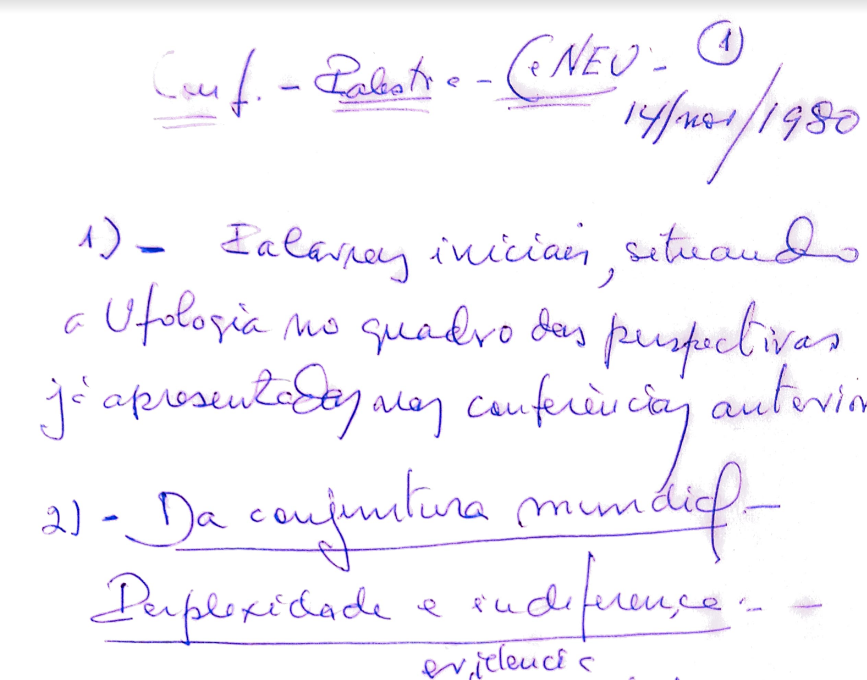 Conf. - Palestra - CeNEU - ①
14/nov/1980
1) - Palavras iniciais, situando
a Ufologia no quadro das perspectivas
já apresentadas nas conferências anterior
2) - Da conjuntura mundial -
Perplexidade e indiferença: - -
evidência